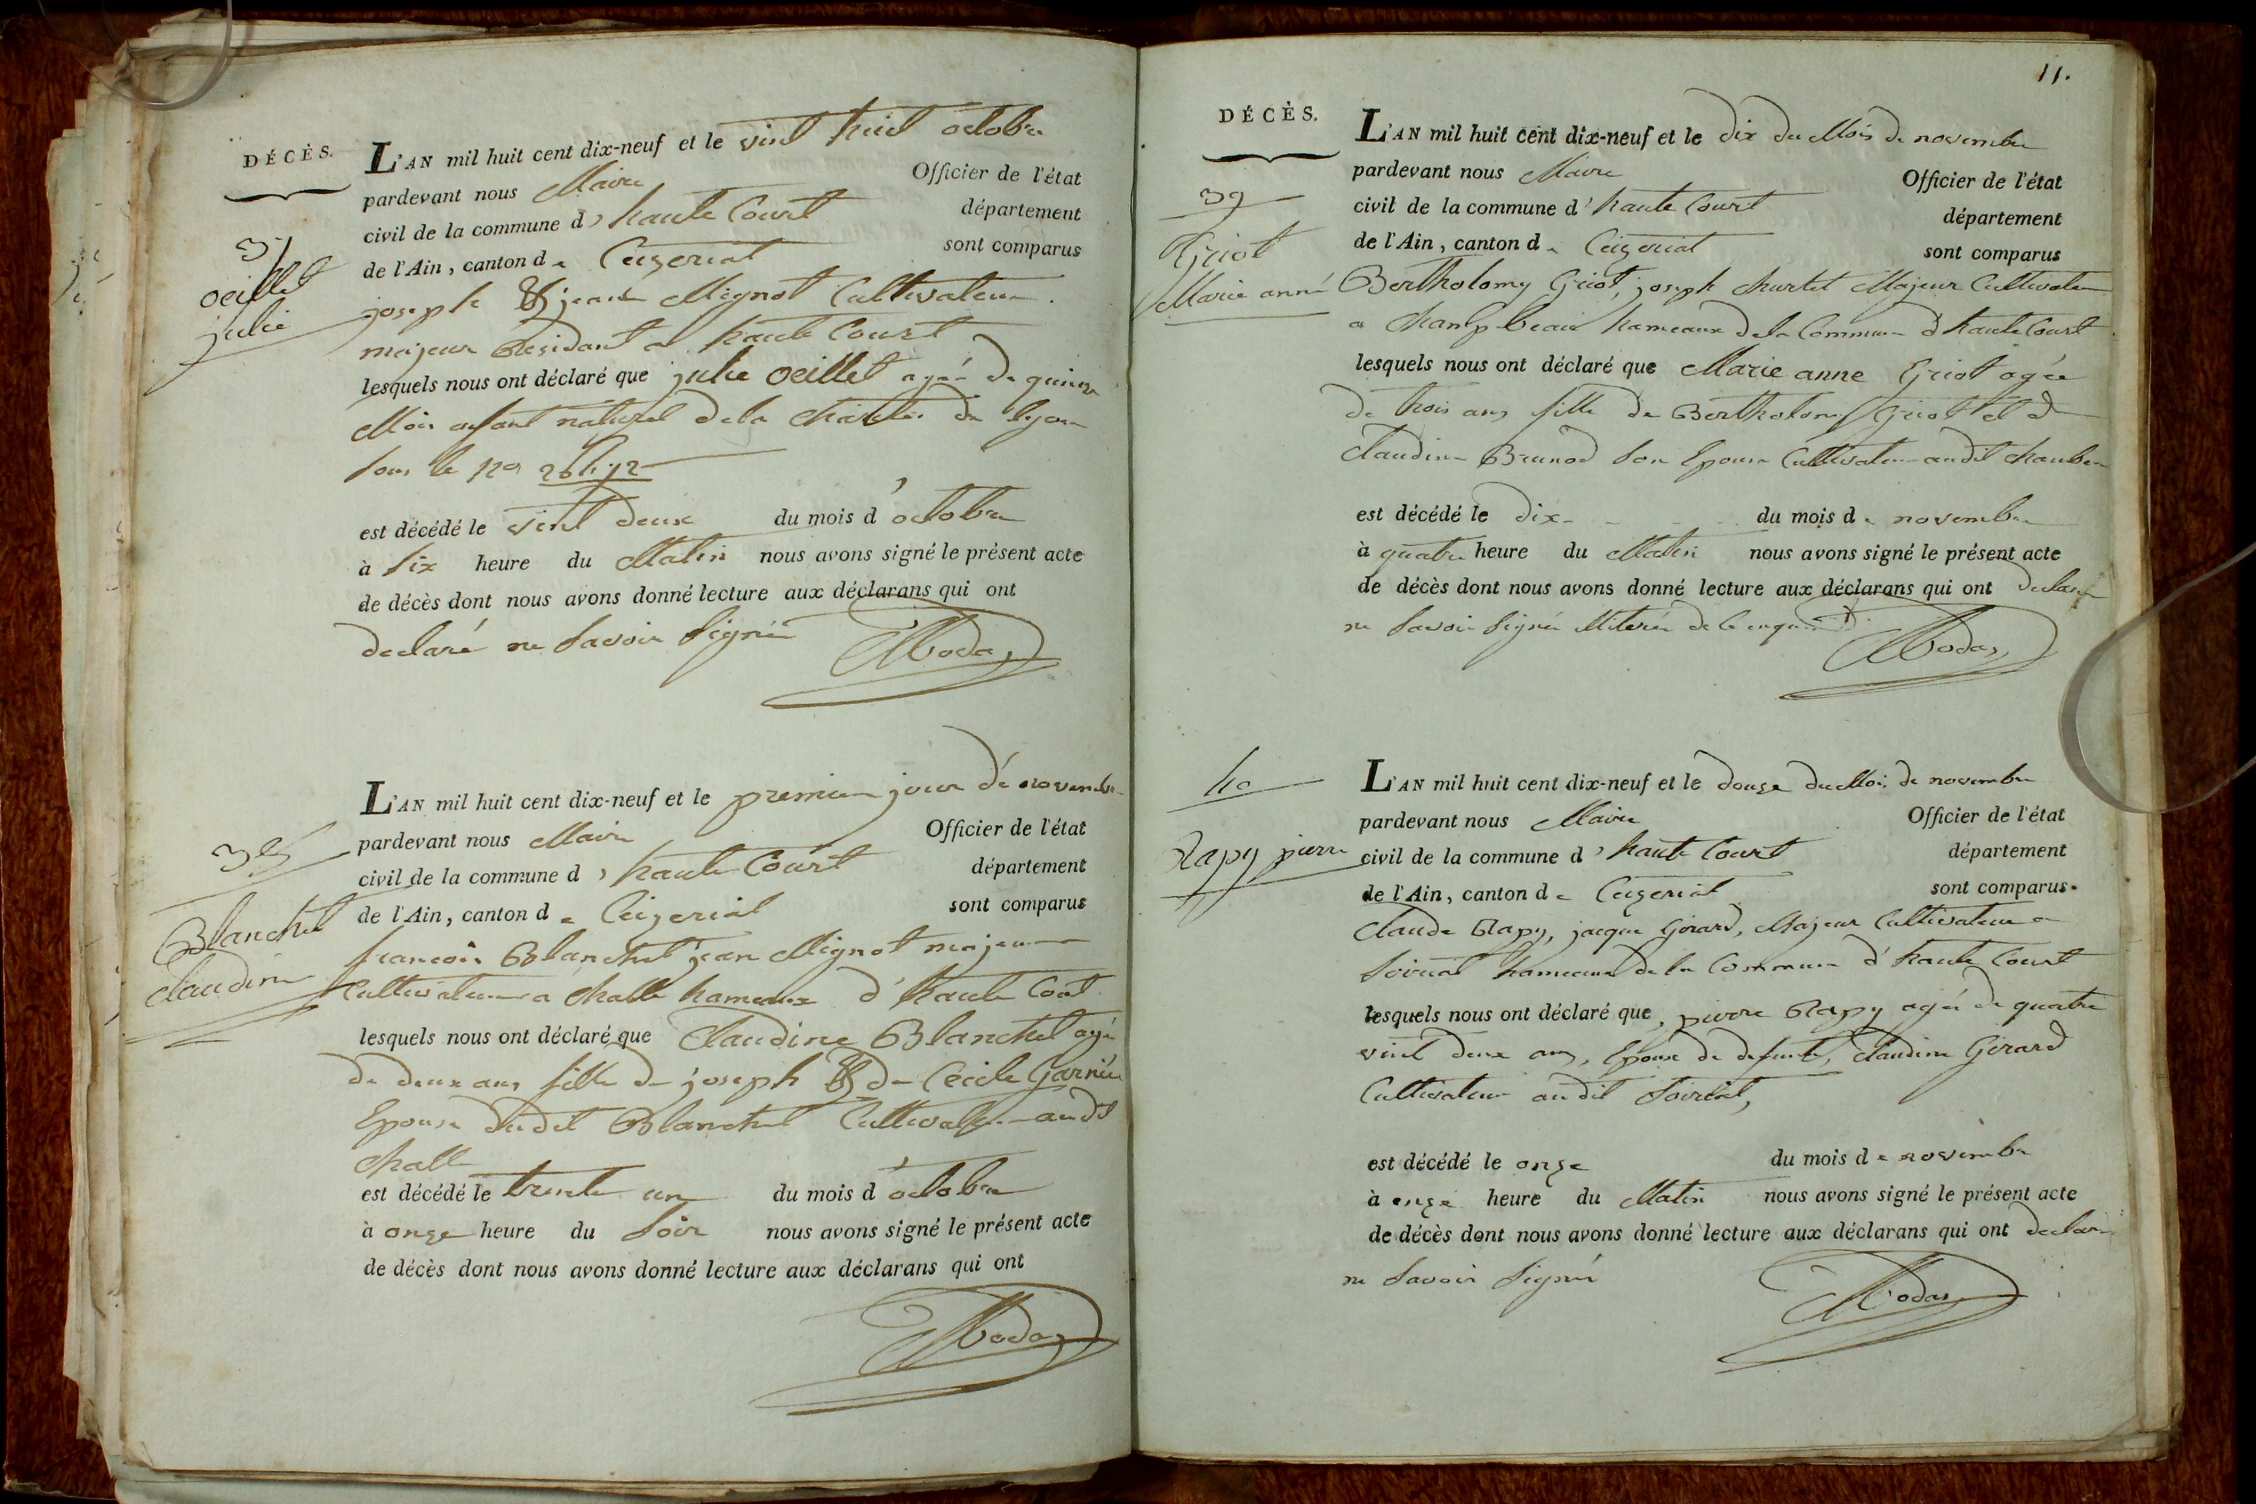 DÉCÈS.
L'AN mil huit cent dix-neuf et le vint huit octobre
pardevant nous Maire Officier de l'état
civil de la commune d' haute Court département
de l'Ain, canton de Ceizeriat sont comparus
37
oeillet
julie
joseph & jean Mignot Cultivateur
majeur Residant a haute Court
lesquels nous ont déclaré que julie oeillet agée de quinze
Mois enfant naturel de la charité de lyon
Sous le no
est décédé le vint deux du mois d'octobre
à Six heure du Matin nous avons signé le présent acte
de décès dont nous avons donné lecture aux déclarans qui ont
declaré ne Savoir Signer
L'AN mil huit cent dix-neuf et le premier jour de novembre
pardevant nous Maire Officier de l'état
civil de la commune d' haute Court département
de l'Ain, canton de Ceizeriat sont comparus
38
Blanchet
Claudine
francois Blanchet jean Mignot majeur
Cultivateur a challe hameaux d' haute Court
lesquels nous ont déclaré que Claudine Blanchet agée
de deux ans fille de joseph & de Cécile Garnier
Epouse dudit Blanchet Cultivateur audit
challe
est décédé le trente un du mois d'octobre
à onze heure du Soir nous avons signé le présent acte
de décès dont nous avons donné lecture aux déclarans qui ont
11.
DÉCÈS.
L'AN mil huit cent dix-neuf et le dix du Mois de novembre
pardevant nous Maire Officier de l'état
civil de la commune d' haute Court département
de l'Ain, canton de Ceizeriat sont comparus
39
Griot
Marie anne
Bertholomy Griot, joseph churlet Majeur Cultivateur
a hameaux de la Commune d'haute Court
lesquels nous ont déclaré que Marie anne Griot agée
de trois ans fille de Bertholomy Griot et de
Claudine Brunod Son Epouse Cultivateur audit
est décédé le dix du mois de novembre
à quatre heure du Matin nous avons signé le présent acte
de décès dont nous avons donné lecture aux déclarans qui ont declaré
ne Savoir Signer
40
Rapy pierre
L'AN mil huit cent dix-neuf et le douze du Mois de novembre
pardevant nous Maire Officier de l'état
civil de la commune d' haute Court département
de l'Ain, canton de Ceizeriat sont comparus.
Claude Rapy, jacque Girard, Majeur Cultivateur a
hameaux de la Commune d' haute Court
lesquels nous ont déclaré que pierre Rapy agée de quatre
vint deux ans, Epoux de defunte, Claudine Girard
Cultivateur audit
est décédé le onze du mois de novembre
à onze heure du Matin nous avons signé le présent acte
de décès dont nous avons donné lecture aux déclarans qui ont declaré
ne Savoir Signer